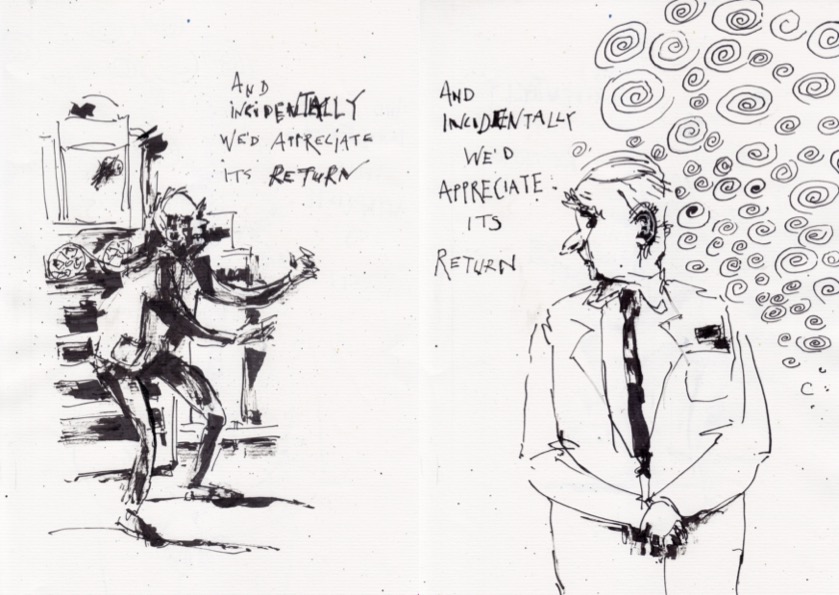 AND
INCIDENTALLY
WE'D APPRECIATE
ITS RETURN
AND
INCIDENTALLY
WE'D
APPRECIATE
ITS
RETURN